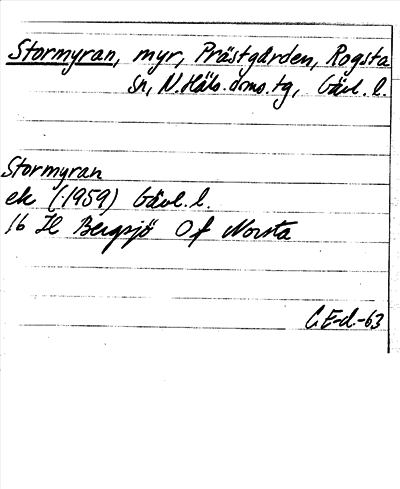 Stormyran, myr, Prästgården, Rogsta
sn, N. Häls. dms. tg, Gävl. l.
Stormyran
ek (1959) Gävl. l.
16 H Bergsjö 0 f Norsta
C.E-d.-63